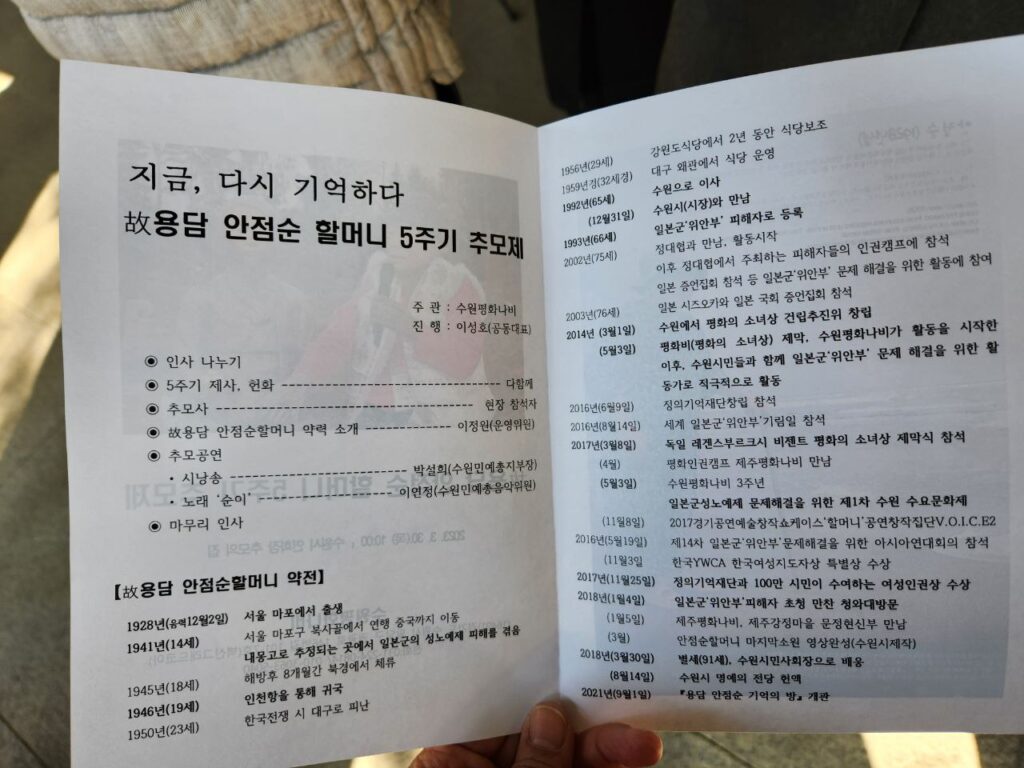 지금, 다시 기억하다
故용담 안점순 할머니 5주기 추모제
주 관 : 수원평화나비
진 행 : 이성호(공동대표)
◉ 인사 나누기
◉ 5주기 제사, 헌화 -------------------------------- 다함께
◉ 추모사 -------------------------------------- 현장 참석자
◉ 故용담 안점순할머니 약력 소개 -------------- 이정원(운영위원)
◉ 추모공연
• 시낭송 ---------------------------- 박설희(수원민예총지부장)
• 노래 '순이' -------------------- 이연정(수원민예총음악위원)
◉ 마무리 인사
【故용담 안점순할머니 약전】
1928년(음력12월2일) 서울 마포에서 출생
1941년(14세) 서울 마포구 복사골에서 연행 중국까지 이동
내몽고로 추정되는 곳에서 일본군의 성노예제 피해를 겪음
1945년(18세) 해방후 8개월간 북경에서 체류
1946년(19세) 인천항을 통해 귀국
1950년(23세) 한국전쟁 시 대구로 피난
1956년(29세) 강원도식당에서 2년 동안 식당보조
1959년경(32세경) 대구 왜관에서 식당 운영
1992년(65세) 수원으로 이사
(12월31일) 수원시(시장)와 만남
1993년(66세) 일본군'위안부' 피해자로 등록
2002년(75세) 정대협과 만남, 활동시작
이후 정대협에서 주최하는 피해자들의 인권캠프에 참석
일본 증언집회 참석 등 일본군'위안부' 문제 해결을 위한 활동에 참여
2003년(76세) 일본 시즈오카와 일본 국회 증언집회 참석
2014년 (3월1일) 수원에서 평화의 소녀상 건립추진위 창립
(5월3일) 평화비(평화의 소녀상) 제막, 수원평화나비가 활동을 시작한
이후, 수원시민들과 함께 일본군'위안부' 문제 해결을 위한 활
동가로 적극적으로 활동
2016년(6월9일) 정의기억재단창립 참석
2016년(8월14일) 세계 일본군'위안부'기림일 참석
2017년(3월8일) 독일 레겐스부르크시 비젠트 평화의 소녀상 제막식 참석
(4월) 평화인권캠프 제주평화나비 만남
(5월3일) 수원평화나비 3주년
일본군성노예제 문제해결을 위한 제1차 수원 수요문화제
(11월8일) 2017경기공연예술창작쇼케이스'할머니'공연창작집단V.O.I.C.E2
2016년(5월19일) 제14차 일본군'위안부'문제해결을 위한 아시아연대회의 참석
(11월3일 한국YWCA 한국여성지도자상 특별상 수상
2017년(11월25일) 정의기억재단과 100만 시민이 수여하는 여성인권상 수상
2018년(1월4일) 일본군'위안부'피해자 초청 만찬 청와대방문
(1월5일) 제주평화나비, 제주강정마을 문정현신부 만남
(3월) 안점순할머니 마지막소원 영상완성(수원시제작)
2018년(3월30일) 별세(91세), 수원시민사회장으로 배웅
(8월14일) 수원시 명예의 전당 헌액
2021년(9월1일) 『용담 안점순 기억의 방』 개관